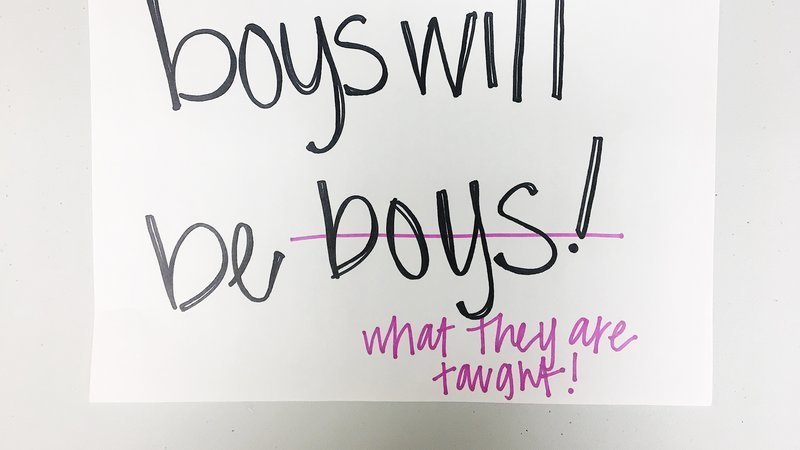 boys will
be boys!
what they are
taught!